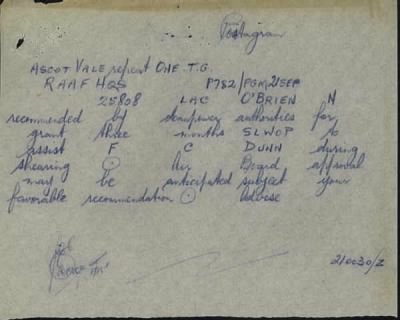 Postagram
ASCOT VALE repeat ONE T.G.
RAAF HQS P782/PGM 21 SEP
25808 LAC O'BRIEN N
recommended by manpower authorities for
grant three months SLWOP to
assist F C DUNN during
shearing ⊙ Air Board approval
may be anticipated subject your
favorable recommendation ⊙ Advise
210030/Z